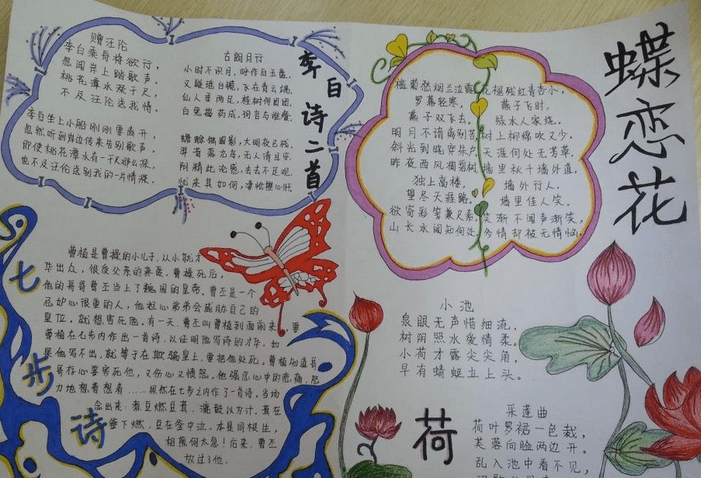 李白诗二首
赠汪伦
李白乘舟将欲行,
忽闻岸上踏歌声。
桃花潭水深千尺,
不及汪伦送我情。
李白坐上小船刚刚要离开,
忽然听到岸边传来告别歌声。
即使桃花潭水有一千尺那么深,
也不及汪伦送别我的一片情深。
古朗月行
小时不识月,呼作白玉盘。
又疑瑶台镜,飞在青云端。
仙人垂两足,桂树何团团。
白兔捣药成,问言与谁餐。
蟾蜍蚀圆影,大明夜已残。
羿昔落九乌,天人清且安。
阴精此沦惑,去去不足观。
忧来其如何,凄怆摧心肝
蝶恋花
槛菊愁烟兰泣露
罗幕轻寒,
燕子双飞去。
明月不谙离别苦
斜光到晓穿朱户
昨夜西风凋碧树
独上高楼,
望尽天涯路。
欲寄彩笺兼尺素
山长水阔知何处
花褪残红青杏小,
燕子飞时,
绿水人家绕。
枝上柳绵吹又少,
天涯何处无芳草。
墙里秋千墙外道,
墙外行人,
墙里佳人笑。
笑渐不闻声渐笑,
多情却被无情恼。
七步诗
曹植是曹操的小儿子,从小就才
华出众,很受父亲的亲爱。曹操死后,
他的哥哥曹丕当上了魏国的皇帝。曹丕是一个
忌妒心很重的人,他担心弟弟会威胁自己的
皇位,就想害死他。有一天,曹丕叫曹植到面前来,要
曹植在七步内作出一首诗,以证明他写诗的才华。如
果他写不出,就等于在欺骗皇上,要把他处死。曹植知道哥
哥存心要害死他,又伤心又愤怒。他强忍心中的悲痛,努
力地想着想着……果然他在七步之内作了一首诗,当场
念出来:煮豆燃豆萁,漉豉以为汁。萁在
釜下燃,豆在釜中泣。本是同根生,
相煎何太急!后来,曹丕
放过了他。
小池
泉眼无声惜细流,
树阴照水爱情柔。
小荷才露尖尖角,
早有蜻蜓立上头。
荷
采莲曲
荷叶罗裙一色裁,
芙蓉向脸两边开。
乱入池中看不见,